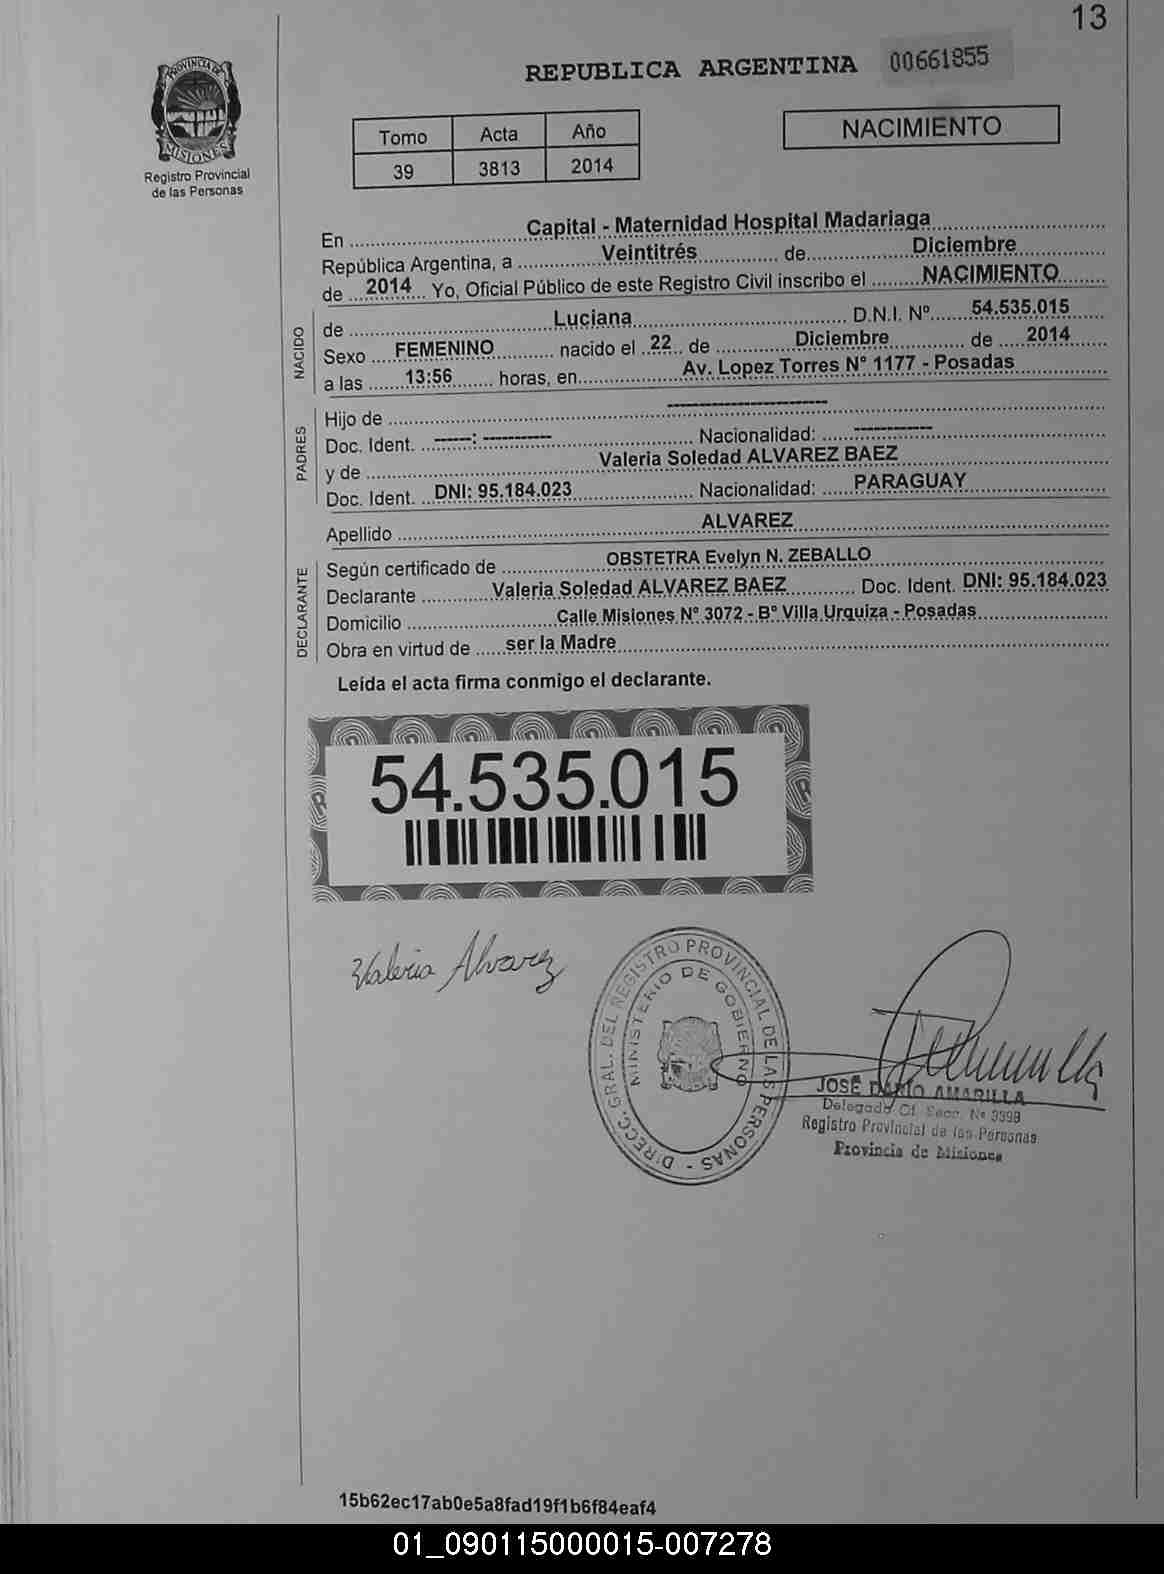 13
PROVINCIA DE
MISIONES
Registro Provincial
de las Personas
REPUBLICA ARGENTINA 00661855
Tomo Acta Año
39 3813 2014
NACIMIENTO
En Capital - Maternidad Hospital Madariaga
República Argentina, a Veintitrés de Diciembre
de 2014 Yo, Oficial Público de este Registro Civil inscribo el NACIMIENTO
NACIDO
de Luciana D.N.I. Nº 54.535.015
Sexo FEMENINO nacido el 22 de Diciembre de 2014
a las 13:56 horas, en Av. Lopez Torres N° 1177 - Posadas
PADRES
Hijo de -----------------------
Doc. Ident. -----: ---------- Nacionalidad: -----------
y de Valeria Soledad ALVAREZ BAEZ
Doc. Ident. DNI: 95.184.023 Nacionalidad: PARAGUAY
Apellido ALVAREZ
DECLARANTE
Según certificado de OBSTETRA Evelyn N. ZEBALLO
Declarante Valeria Soledad ALVAREZ BAEZ Doc. Ident. DNI: 95.184.023
Domicilio Calle Misiones N° 3072 - B° Villa Urquiza - Posadas
Obra en virtud de ser la Madre
Leída el acta firma conmigo el declarante.
54.535.015
Valeria Alvarez
DIRECC. GRAL. DEL REGISTRO PROVINCIAL DE LAS PERSONAS -
MINISTERIO DE GOBIERNO
JOSÉ DARIO AMARILLA
Delegado Of. Secc. Nº 9999
Registro Provincial de las Personas
Provincia de Misiones
15b62ec17ab0e5a8fad19f1b6f84eaf4
01_090115000015-007278